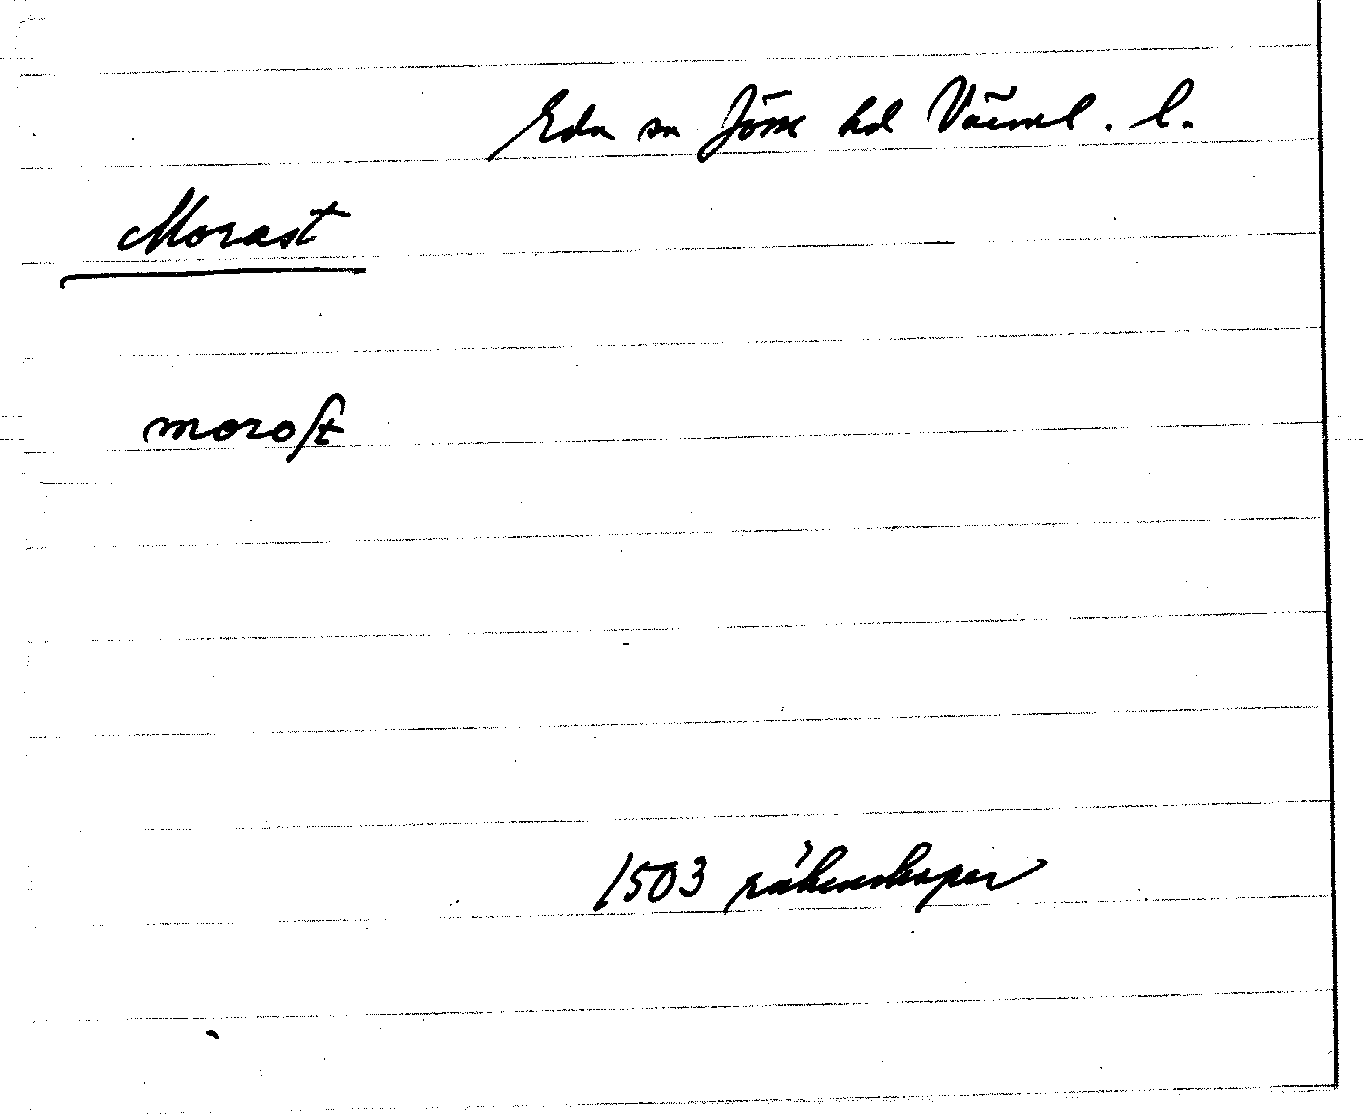 Eda sn Jösse hd Värml. l.
Morast
moroſt
1503 räkenskaper